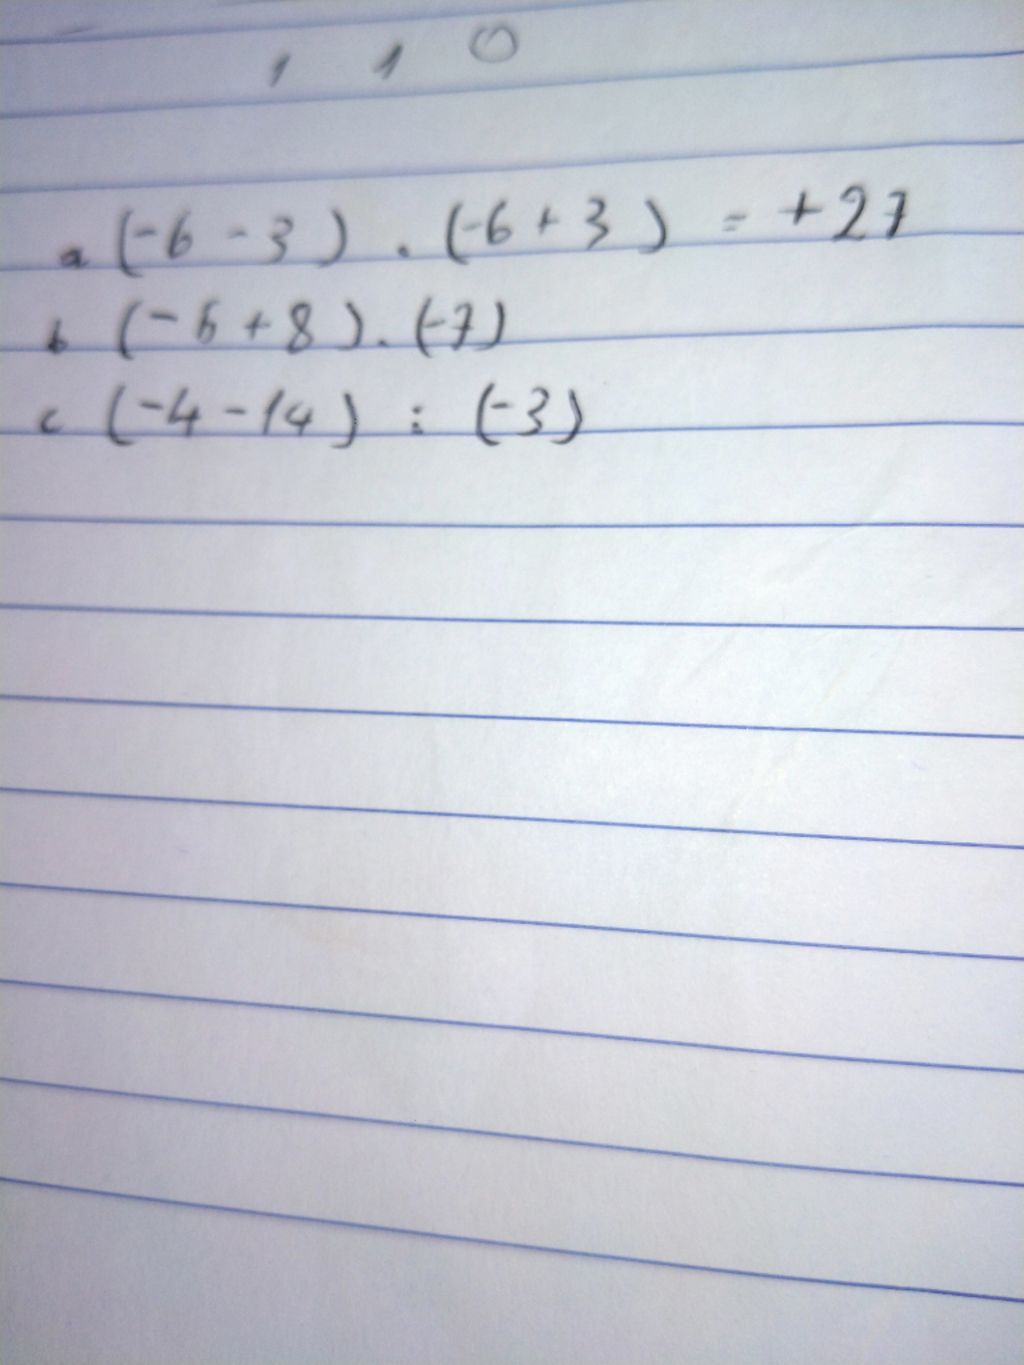 1 1 0
a (-6 - 3) . (-6 + 3) = +27
b (-6 + 8) . (-7)
c (-4 - 14) : (-3)